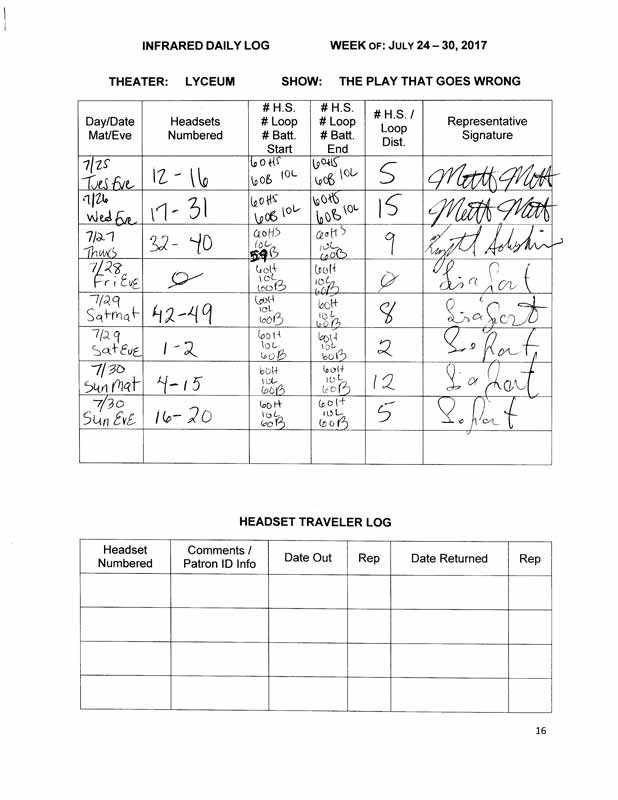 INFRARED DAILY LOG WEEK OF: JULY 24 – 30, 2017
THEATER: LYCEUM SHOW: THE PLAY THAT GOES WRONG
Day/Date Mat/Eve Headsets Numbered # H.S. # Loop # Batt. Start # H.S. # Loop # Batt. End # H.S. / Loop Dist. Representative Signature
7/25 Tues Eve 12 - 16 60HS 60B 10L 60HS 60B 10L 5 Matt Mott
7/26 Wed Eve 17 - 31 60HS 60B 10L 60HS 60B 10L 15 Matt Mott
7/27 Thurs 32 - 40 60HS 10L 59B 60HS 10L 60B 9
7/28 Fri Eve 0 60H 10L 60B 60H 10L 60B 0 Lisa
7/29 Sat mat 42-49 60H 10L 60B 60H 10L 60B 8 Lisa
7/29 Sat Eve 1 - 2 60H 10L 60B 60H 10L 60B 2
7/30 Sun Mat 4 - 15 60H 10L 60B 60H 10L 60B 12
7/30 Sun Eve 16 - 20 60H 10L 60B 60H 10L 60B 5
HEADSET TRAVELER LOG
Headset Numbered Comments / Patron ID Info Date Out Rep Date Returned Rep
16